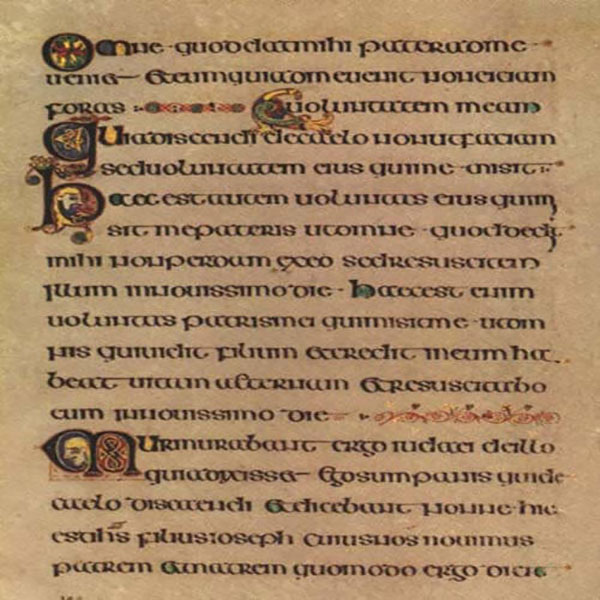 Omne · quod dat mihi pater ad me
ueniet et eum qui ad me uenit non eiciam
foras · uoluntatem meam
Quia discendi de caelo non ut faciam
sed uoluntatem eius qui me misit :
haec est autem uoluntas eius qui m
sit me pateris ut omne · quod dedi
mihi non perdam ex eo sed resuscitem
illum in nouissimo die · haec est enim
uoluntas patris mei qui misit me · ut om
nis qui uidit filium et credit in eum ha
beat uitam aeternam et resuscitabo
eum in nouissimo die
Murmurabant ergo iudaei de illo
quia dixisset ego sum panis qui de
caelo discendi et dicebant nonne hic
est ihs filius ioseph cuius nos nouimus
patrem et matrem quomodo ergo dicit